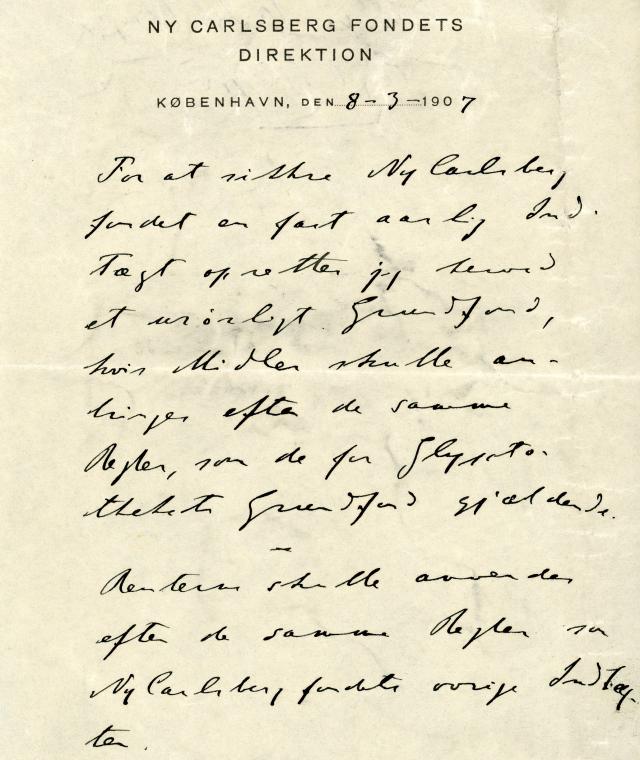 NY CARLSBERG FONDETS
DIREKTION
KØBENHAVN, DEN 8-3-1907
For at sikkre Ny Carlsberg
fondet en fast aarlig Ind.
tægt opretter jeg herved
et urørligt Grundfond,
hvis Midler skulle an-
bringes efter de samme
Regler, som de for Glypto-
thekets Grundfond gjældende.
Renterne skulle anvendes
efter de samme Regler som
Ny Carlsberg fondets øvrige Indtæg-
ter.